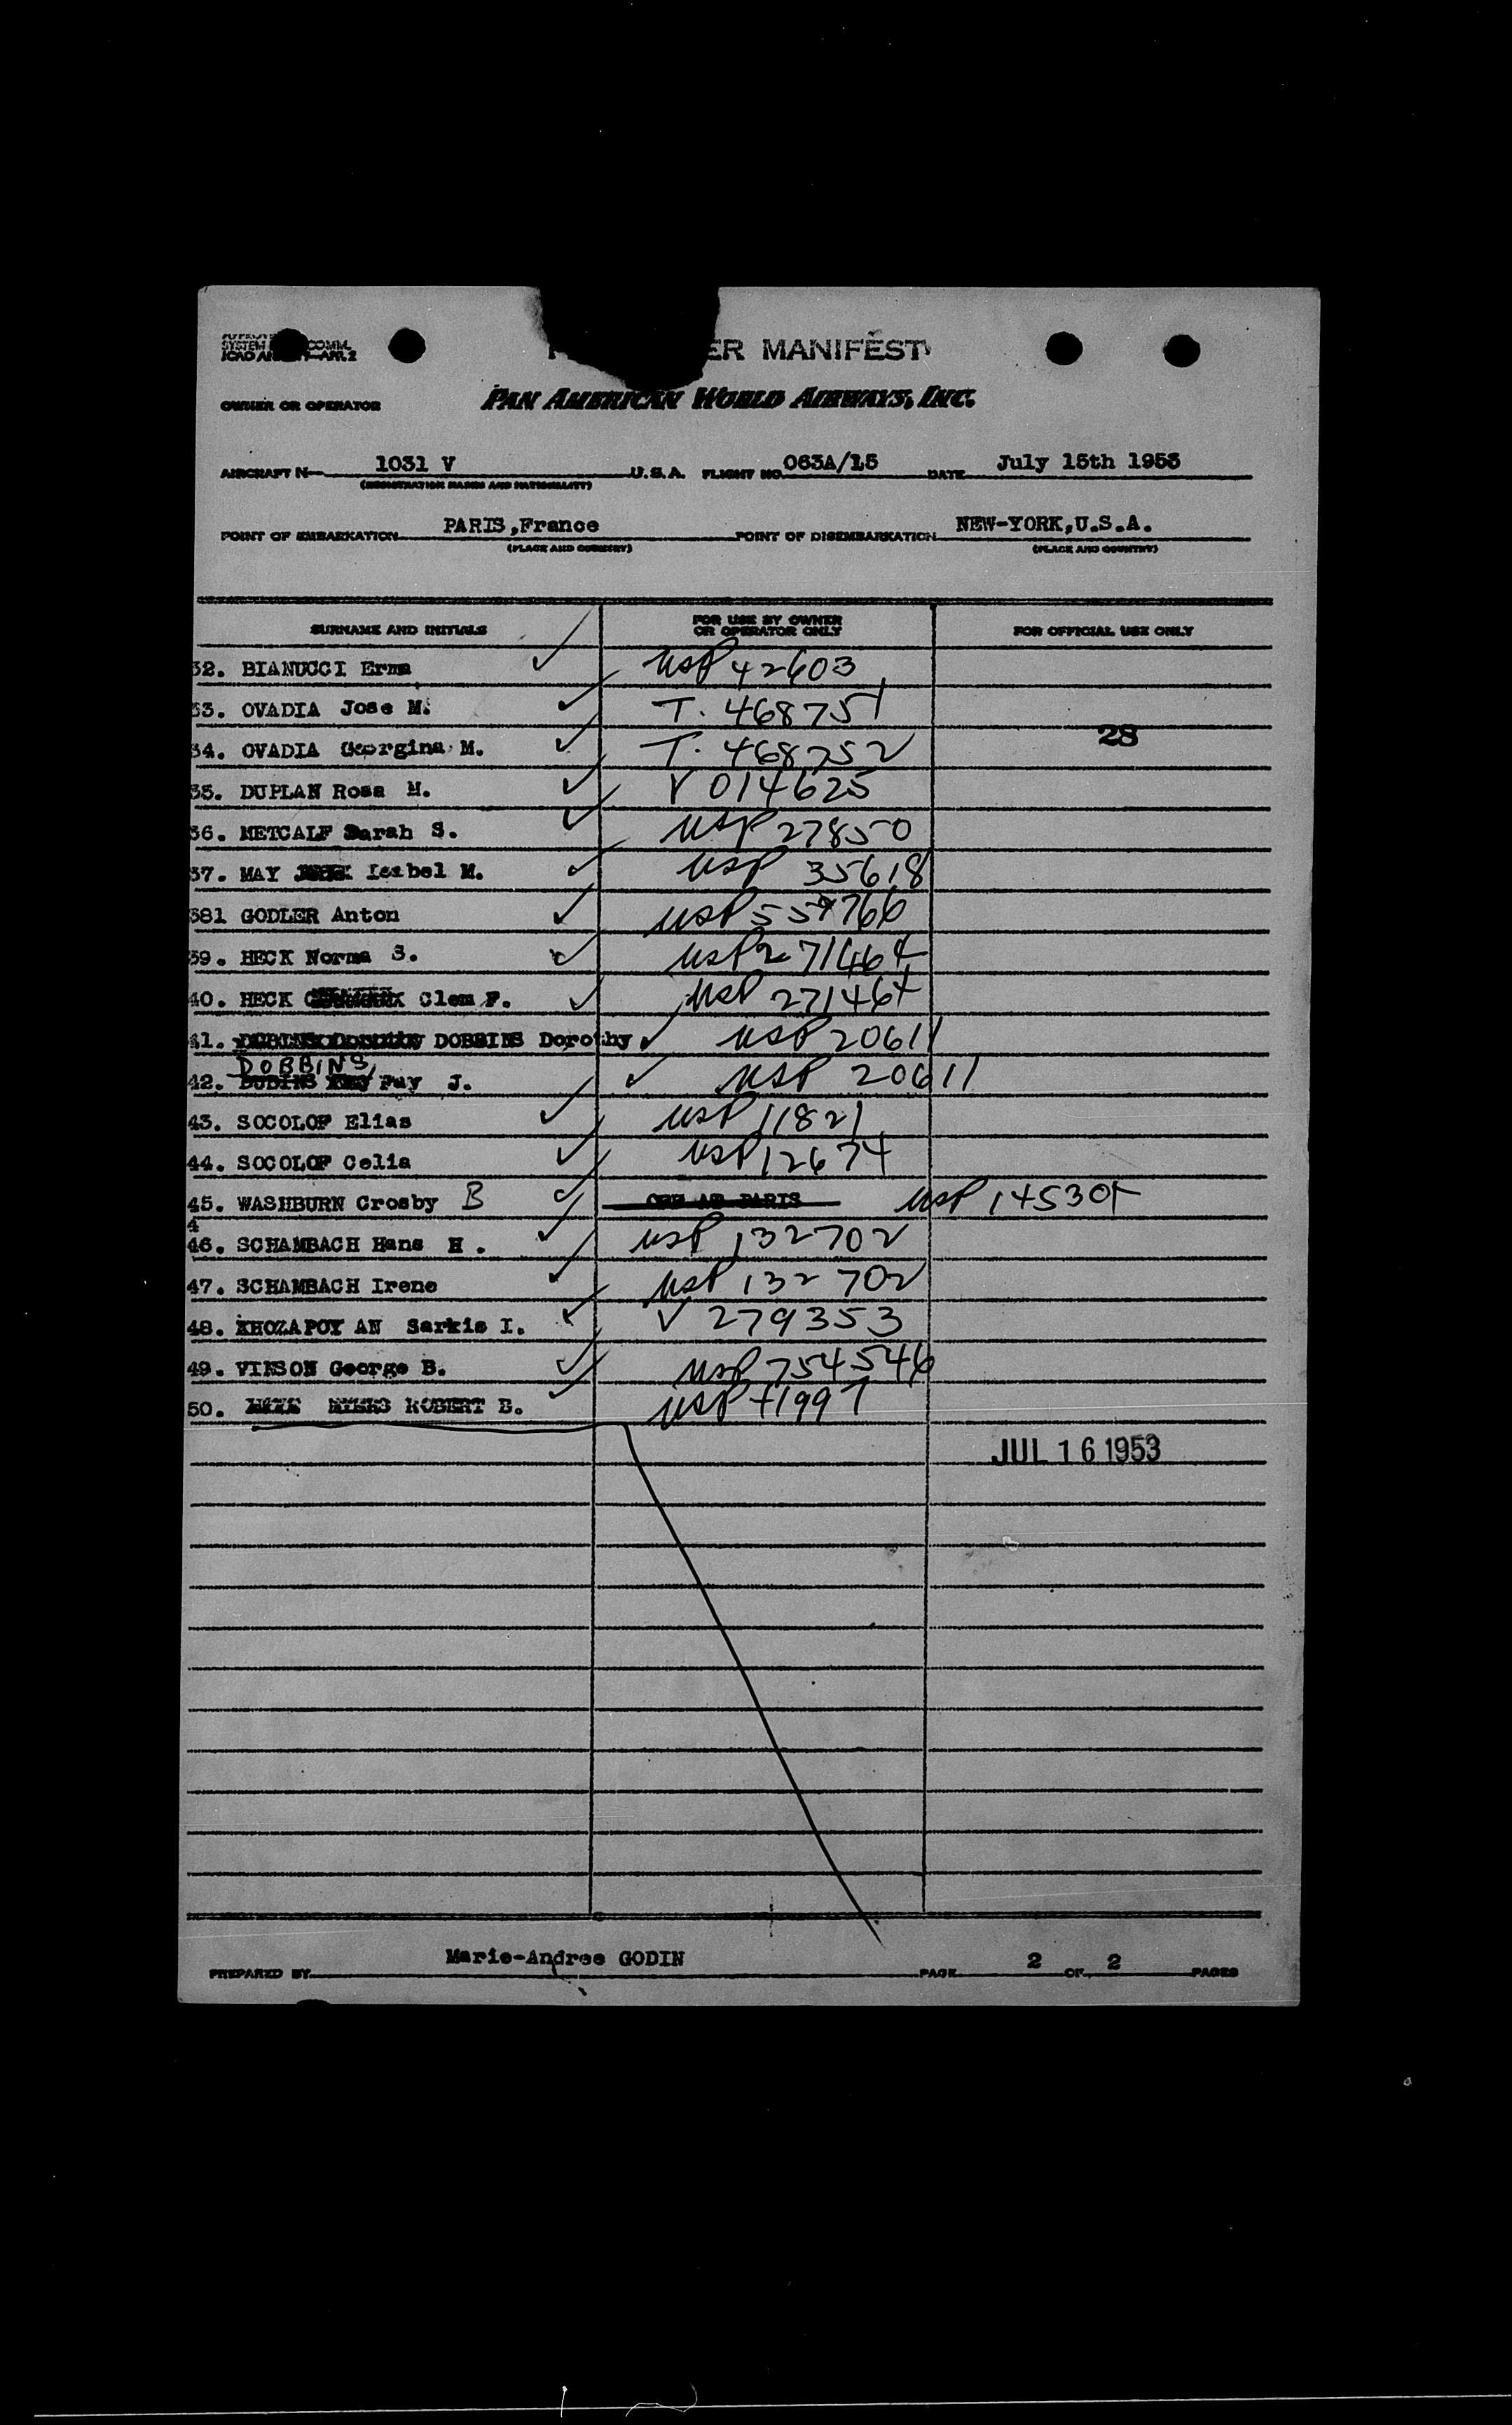 SYSTEM COMM.
ER MANIFEST
OWNER OR OPERATOR PAN AMERICAN WORLD AIRWAYS, INC.
AIRCRAFT N 1031 V U.S.A. FLIGHT NO. 063A/15 DATE July 15th 1953
(REGISTRATION MARKS AND NATIONALITY)
POINT OF EMBARKATION PARIS,France POINT OF DISEMBARKATION NEW-YORK,U.S.A.
(PLACE AND COUNTRY) (PLACE AND COUNTRY)
SURNAME AND INITIALS FOR USE BY OWNER OR OPERATOR ONLY FOR OFFICIAL USE ONLY
32. BIANUCCI Erma ✓ USP 42603
33. OVADIA Jose M. ✓ T. 468751
28
34. OVADIA Georgina M. ✓ T. 468752
35. DUPLAN Rosa M. ✓ V 014625
36. METCALF Sarah S. ✓ USP 27850
37. MAY Isabel M. ✓ USP 35618
381 GODLER Anton ✓ USP 559766
39. HECK Norma S. ✓ USP 271464
40. HECK Clem F. ✓ USP 271464
41. DOBBINS Dorothy ✓ USP 20611
DOBBINS
42. Fay J. ✓ USP 20611
43. SOCOLOF Elias ✓ USP 11821
44. SOCOLOF Celia ✓ USP 12674
45. WASHBURN Crosby B ✓ USP 145304
4
46. SCHAMBACH Hans H. ✓ USP 132702
47. SCHAMBACH Irene ✓ USP 132702
48. KHOZAPOY AN Sarkis I. ✓ V 279353
49. VINSON George B. ✓ USP 754546
50. MYERS ROBERT B. ✓ USP 41997
JUL 16 1953
PREPARED BY Marie-Andree GODIN PAGE 2 OF 2 PAGES